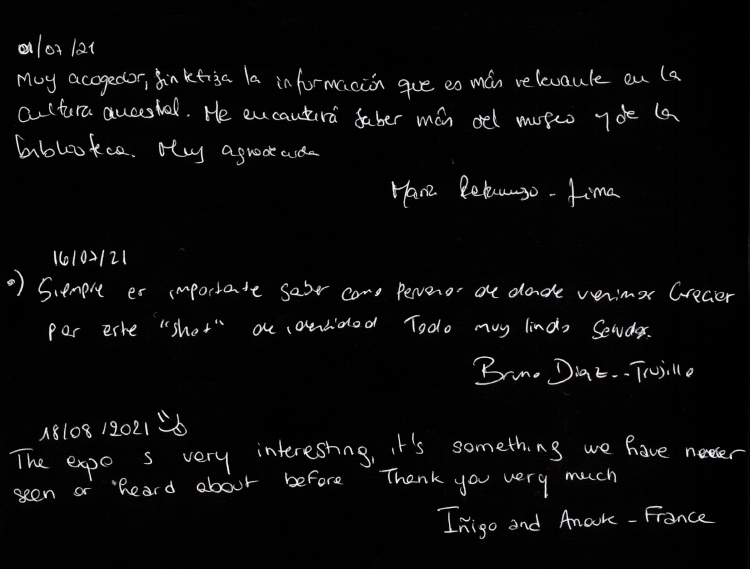 01/07/21
Muy acogedor, sinktiza la información que es más relevante en la
cultura ancestral. Me encantará saber más del museo y de la
biblioteca. Muy agradecida
María - Lima
16/07/21
Siempre es importante saber como peruanos de donde venimos Gracias
por este "shot" de identidad Todo muy lindo Saludos.
Bruno Diaz - Trujillo
18/08/2021
The expo s very interesting, it's something we have never
seen or heard about before Thank you very much
Iñigo and Anouk - France